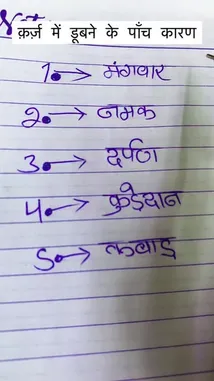 क़र्ज़ में डूबने के पाँच कारण
1. → मंगवार
2. → नमक
3. → दर्पण
4. → कुड़ेदान
5. → कबाड़